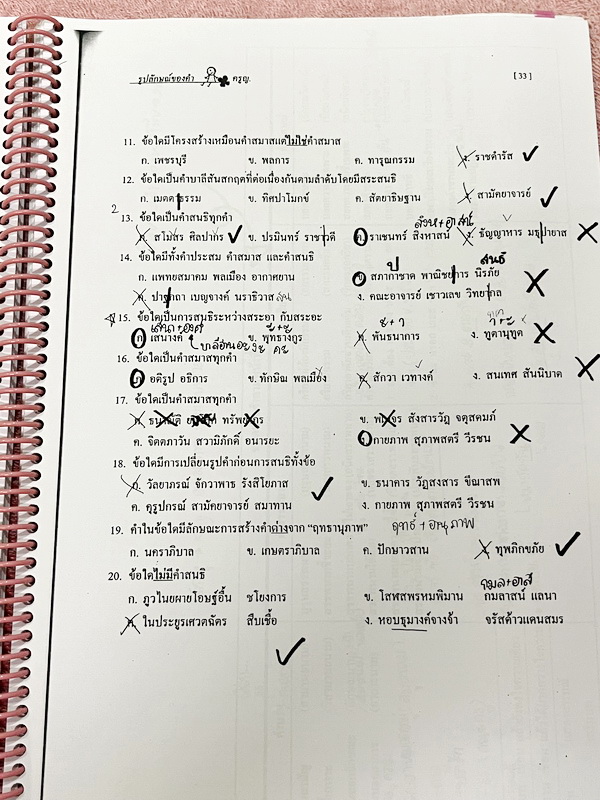 รูปลักษณ์ของคำ ครูญ. [ 33 ]
11. ข้อใดมีโครงสร้างเหมือนคำสมาสแต่ไม่ใช่คำสมาส
ก. เพชรบุรี ข. พลการ ค. ทารุณกรรม ง. ราชดำรัส
12. ข้อใดเป็นคำบาลีสันสกฤตที่ต่อเนื่องกันตามลำดับโดยมีสระสนธิ
ก. เมตตาธรรม ข. ทิศปาโมกข์ ค. สัตยาธิษฐาน ง. สามัคยาจารย์
2
13. ข้อใดเป็นคำสนธิทุกคำ
สิงห+อาสน์
ก. สโมสร ศิลปากร ข. ปรมินทร์ ราชาวดี ค. ราเชนทร์ สิงหาสน์ ง. ธัญญาหาร มธุปายาส
14. ข้อใดมีทั้งคำประสม คำสมาส และคำสนธิ
สนธิ
ก. แพทยสมาคม พลเมือง อากาศยาน ข. สภากาชาด พาณิชยการ นิรภัย
ค. ปาฐกถา เบญจางค์ นราธิวาส ง. คณะอาจารย์ เชาวเลข วิทยากล
15. ข้อใดเป็นการสนธิระหว่างสระอา กับสระอะ
ก. เสนางค์ ข. พุทธางกูร ค. พันธนาการ ง. ทูตานุทูต
16. ข้อใดเป็นคำสมาสทุกคำ
ก. อติรูป อธิการ ข. ทักษิณ พลเมือง ค. สักวา เวทางค์ ง. สนเทศ สันนิบาต
17. ข้อใดเป็นคำสมาสทุกคำ
ก. ธนาณัติ ทรัพยากร ข. พนจร สังสารวัฏ จตุสดมภ์
ค. จิตตภาวัน สวามิภักดิ์ อนารยะ ง. กายภาพ สุภาพสตรี วีรชน
18. ข้อใดมีการเปลี่ยนรูปคำก่อนการสนธิทั้งข้อ
ก. วัลยาภรณ์ จักวาพาธ รังสิโยภาส ข. ธนาคาร วัฏสงสาร ขีณาสพ
ค. คุรูปกรณ์ สามัคยาจารย์ สมาทาน ง. กายภาพ สุภาพสตรี วีรชน
19. คำในข้อใดมีลักษณะการสร้างคำต่างจาก "ฤทธานุภาพ" ฤทธ์ + อานุภาพ
ก. นคราภิบาล ข. เกษตราภิบาล ค. ปักษาวสาน ง. ทุพภิกขภัย
20. ข้อใดไม่มีคำสนธิ
กมล+อาสน์
ก. ภูวไนยผายโอษฐ์อื้น ชโยงการ ข. โสฬสพรหมพิมาน กมลาสน์ แลนา
ค. ในประยูรเศวตฉัตร สืบเชื้อ ง. หอบธุมางค์จางจ้า จรัสด้าวแดนสมร